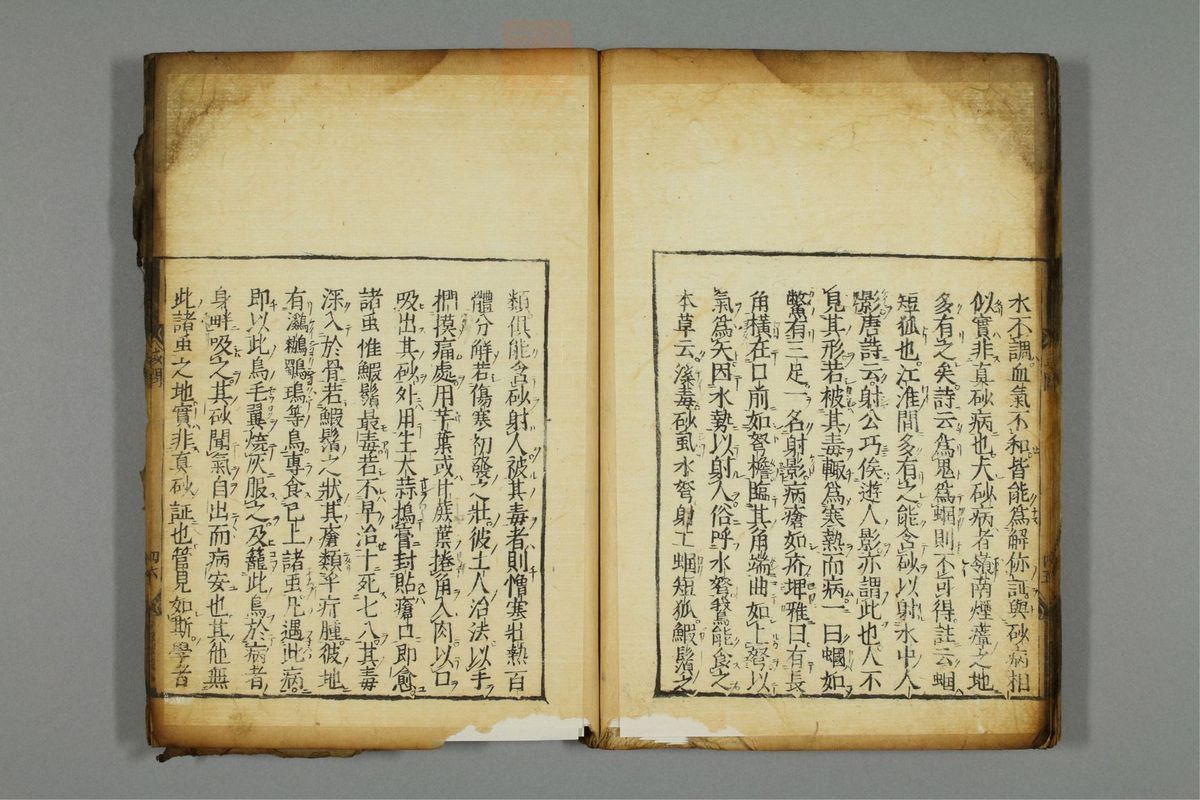 水不調血氣不和皆能爲解㑊証與砂病相
似實非真砂病也夫砂病者嶺南煙瘴之地
多有之矣詩云爲鬼爲蜮則不可得註云蜮
短狐也江淮間多有之能含砂以射水中人
影唐詩云射公巧俟遊人影亦謂此也人不
見其形若被其毒輙爲寒熱而病一曰蜮如
鱉有三足一名射影病瘡如疥埤雅曰有長
角横在口前如弩檐臨其角端曲如上弩以
氣爲矢因水勢以射人俗呼水弩鵞能食之
本草云溪毒砂虱水弩射工蜮短狐蝦鬚之
類俱能含砂射人被其毒者則憎寒壯熱百
體分解若傷寒初發之壯彼土人治法以手
捫摸痛處用芋葉或甘蔗葉捲角入肉以口
吸出其砂外用生大蒜搗膏封貼瘡口即愈
諸虫惟蝦鬚最毒若不早治十死七八其毒
深入於骨若蝦鬚之狀其瘡類乎疔腫彼地
有鸂鶒鸀鳿等鳥專食已上諸虫凡遇此病
即以此鳥毛翼燒灰服之及籠此鳥於病者
身畔吸之其砂聞氣自出而病安也其他無
此諸虫之地實非真砂証也管見如斯學者